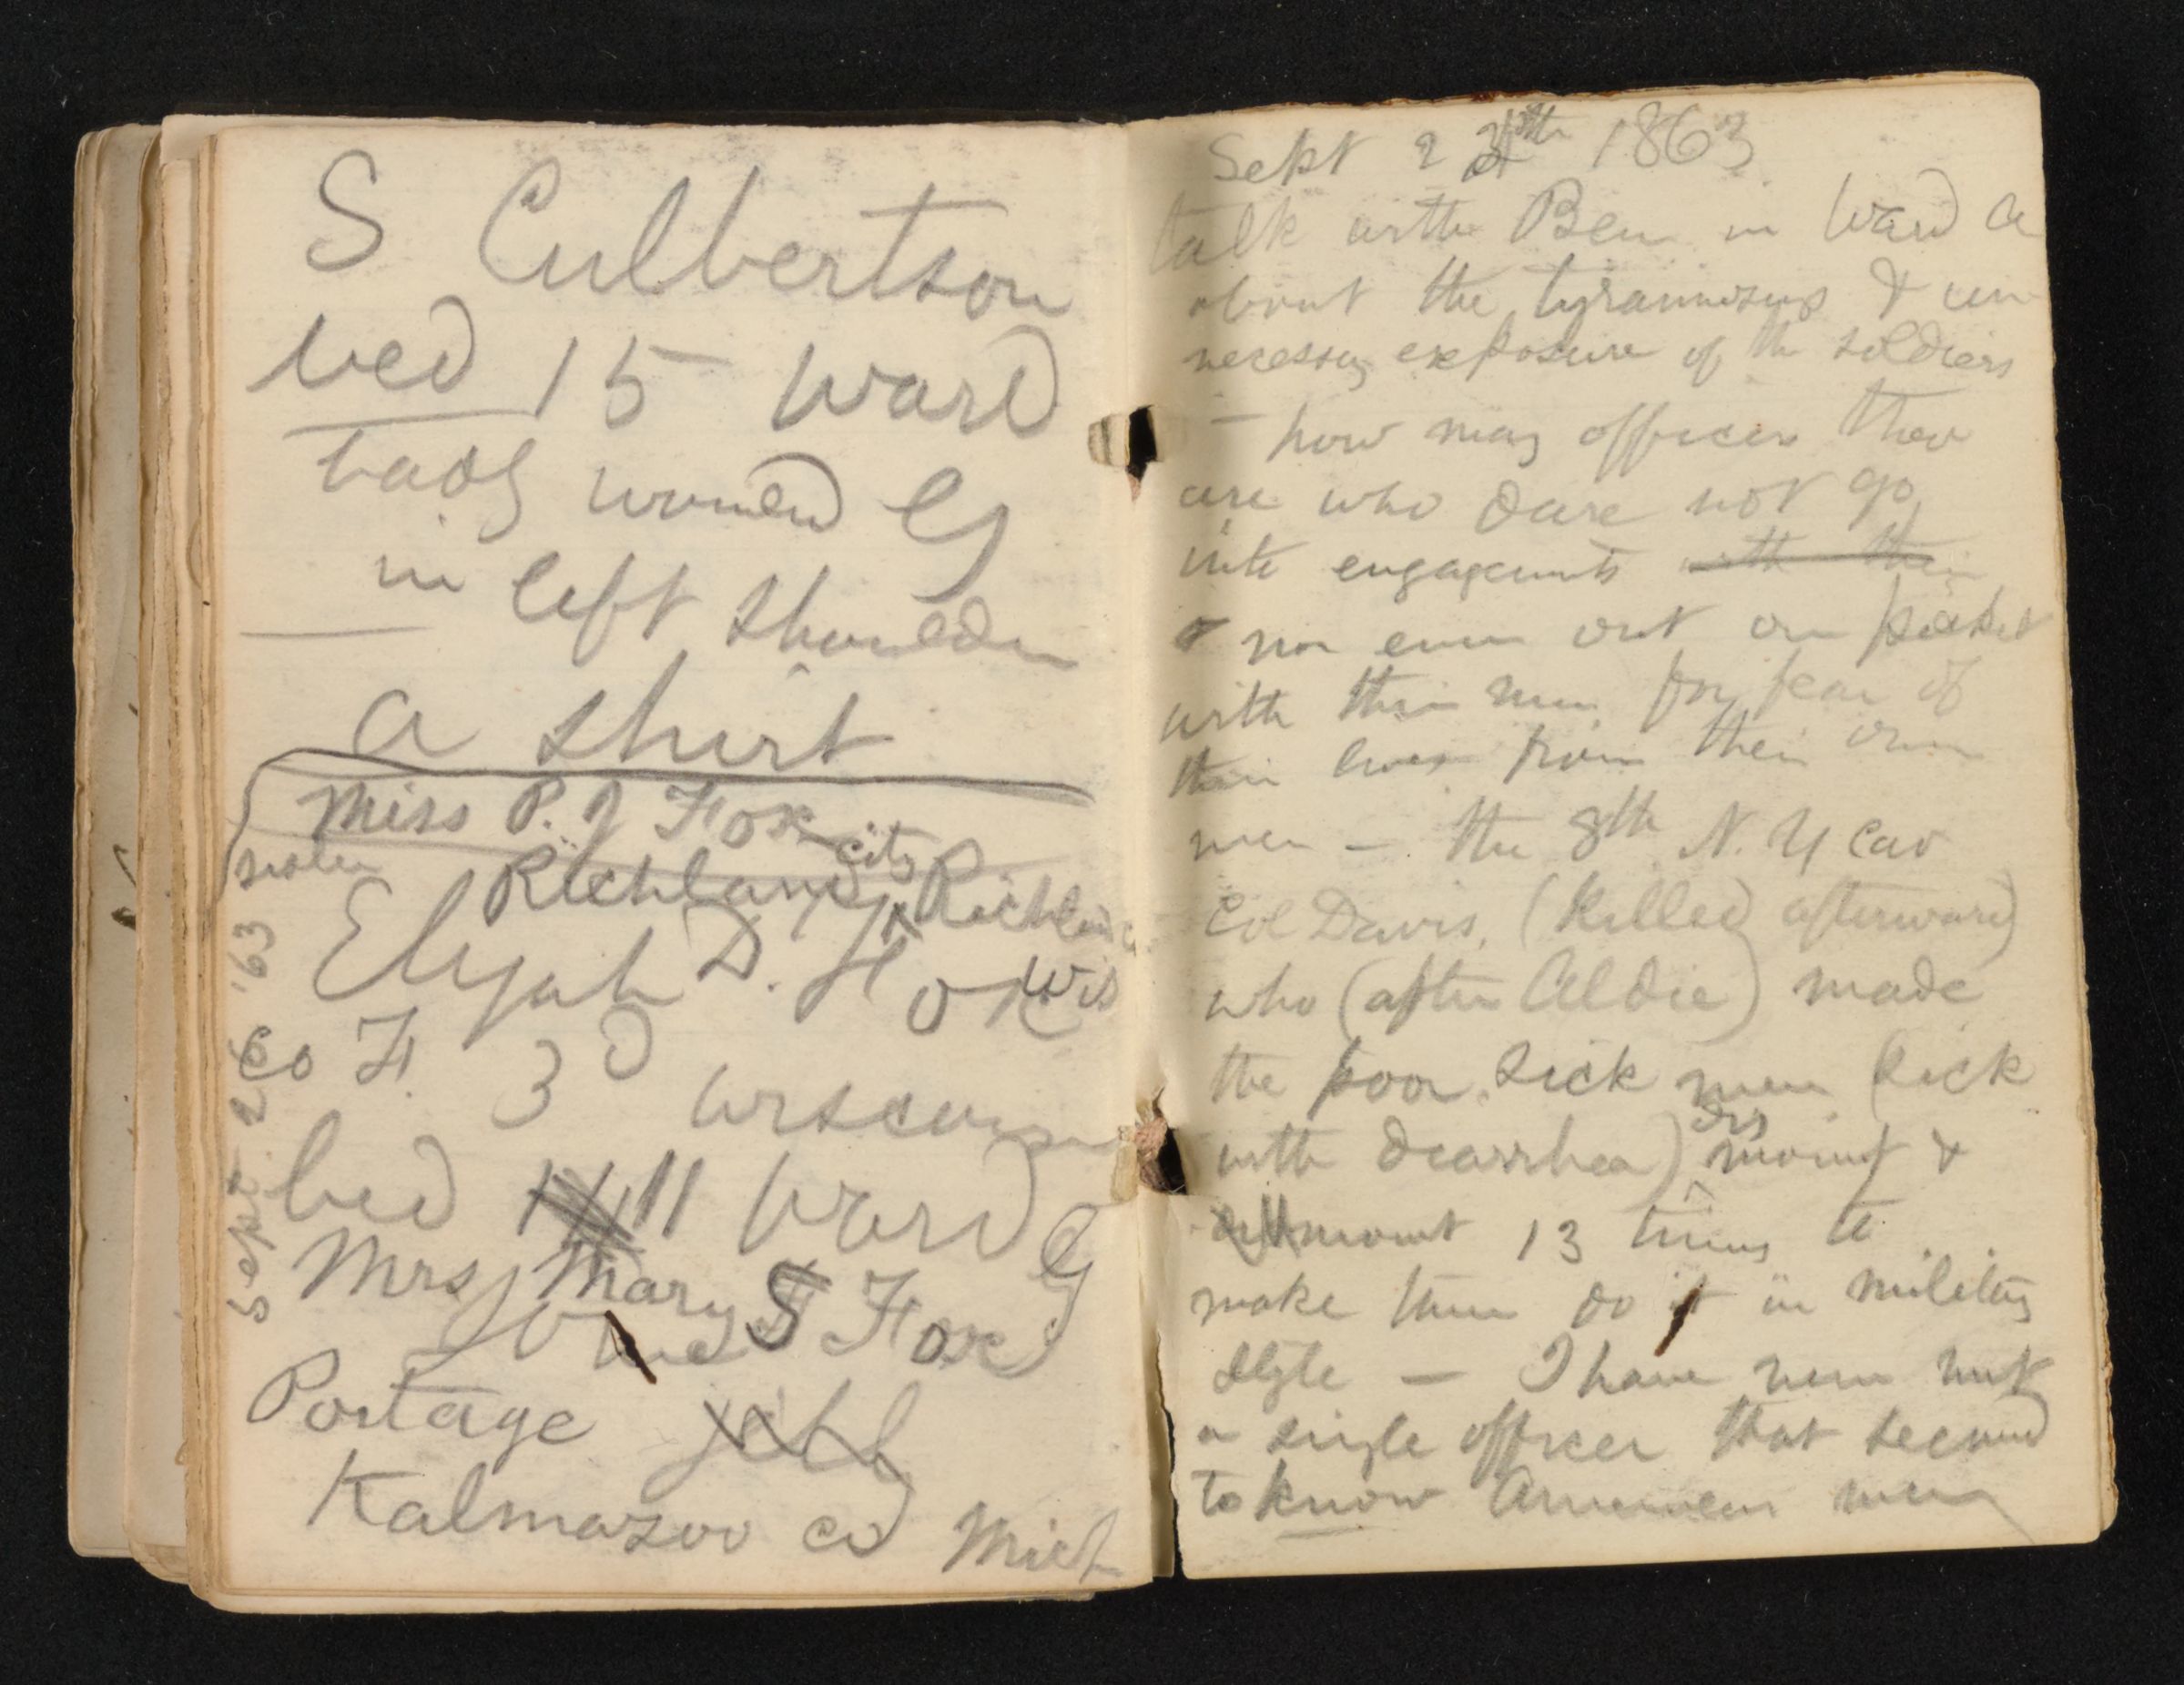 S Culbertson
bed 15 ward
G
badly wounded
in left shoulder
a shirt
Miss P. J Fox
sister
Richland city Richland
Elijah D. Fox Wis
Co F. 3d Wisconsin
bed 11 Ward G
Mrs Mary S Fox
Portage
Kalmazoo co Mich
Sept. 26 '63
Sept 2 th 1863
talk with Ben in Ward A
about the tyrannous & un
necessary exposure of the soldiers
— how many officers there
are who dare not go
into engagements with their
nor even out on picket
with their men for fear of
their lives from their own
men — the 8th N. Y Cav
Col Davis, (killed afterward)
who (after Aldie) made
the poor sick men (sick
with diarrhea) dismount &
mount 13 times to
make them do it in military
style — I have now met
a single officer that seemed
to know American men